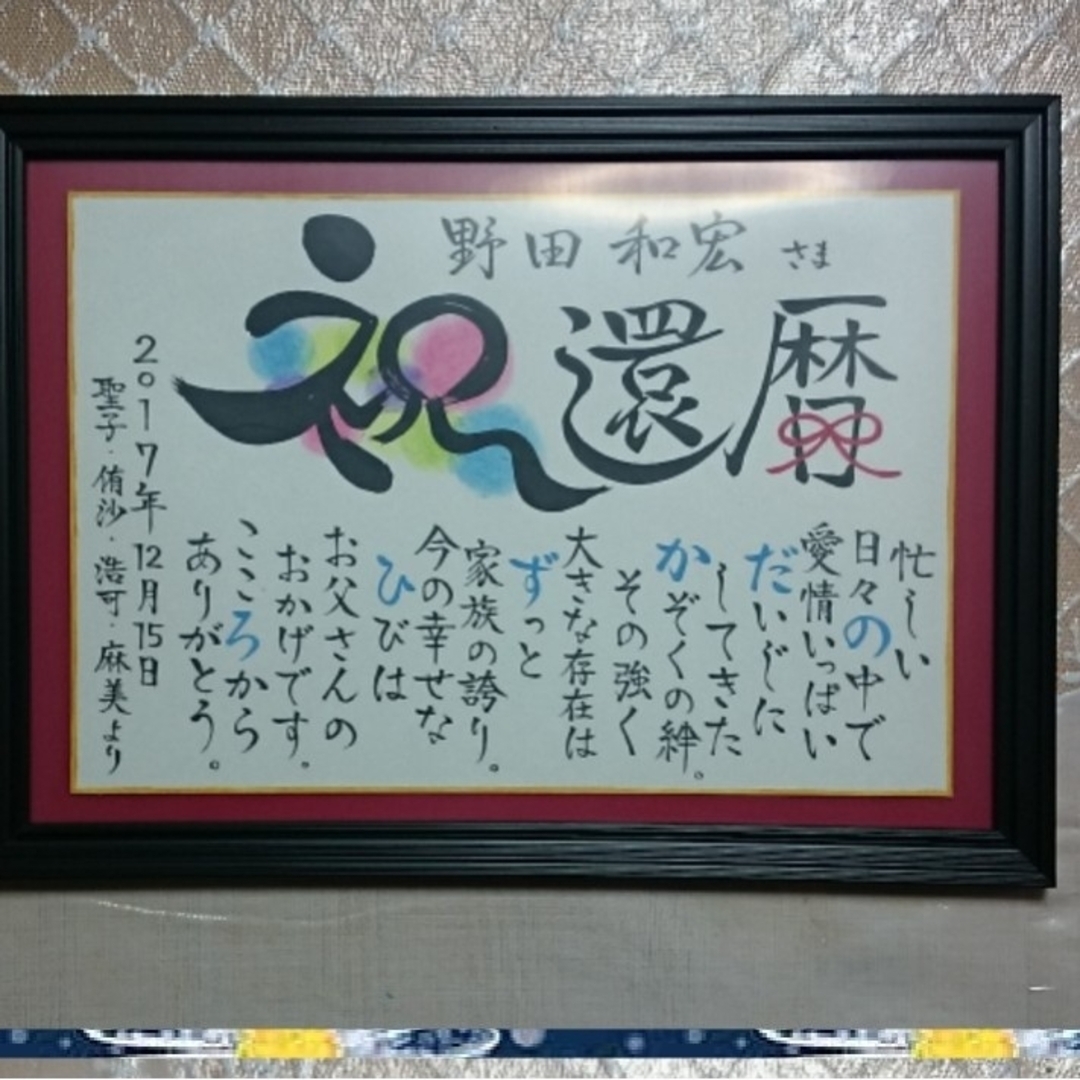 野田 和宏 さま
祝 還暦
忙しい
日々の中で
愛情いっぱい
だいじに
してきた
かぞくの絆。
その強く
大きな存在は
ずっと
家族の誇り。
今の幸せな
ひびは
お父さんの
おかげです。
こころから
ありがとう。
2017年12月15日
聖子・侑沙・浩可・麻美より